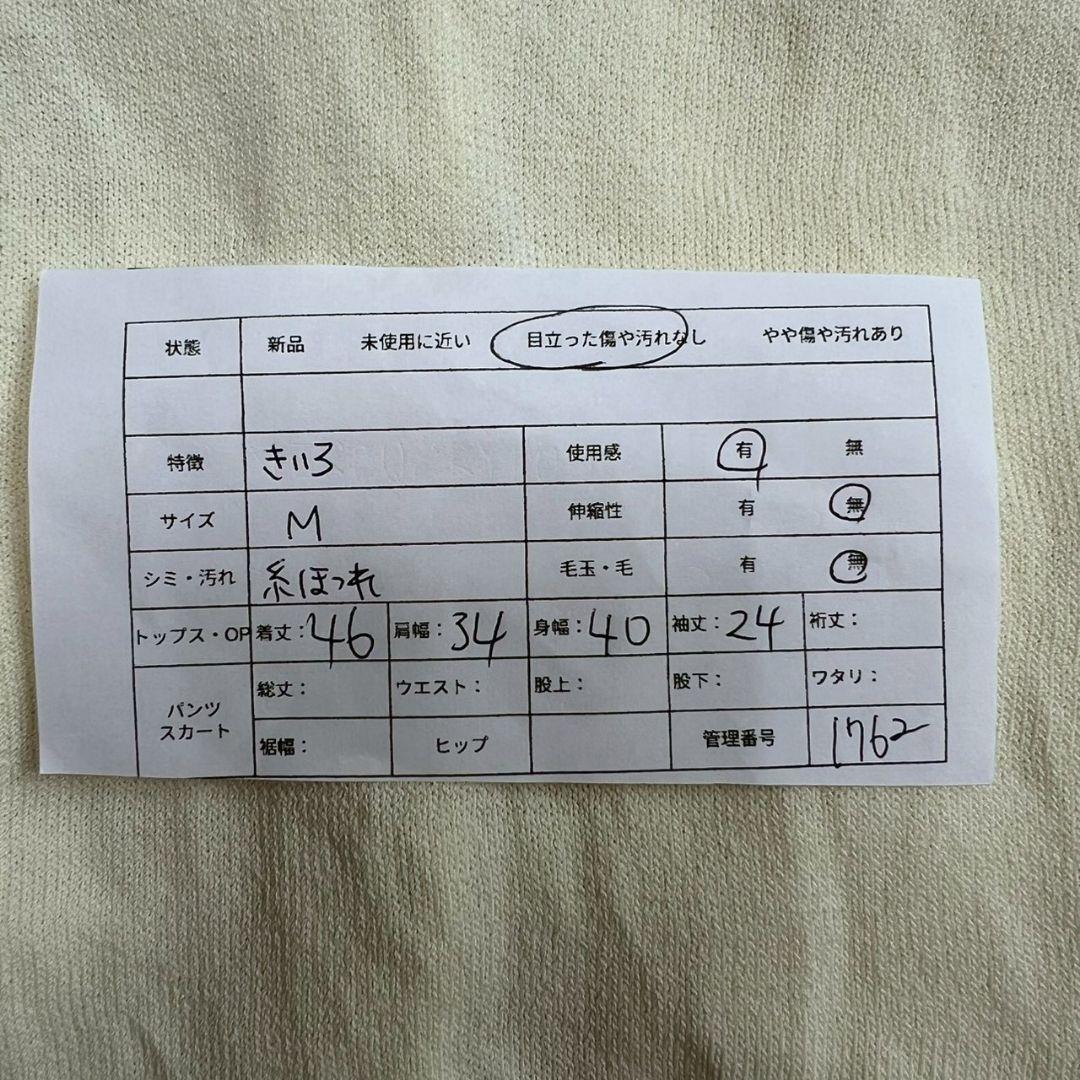 状態 新品 未使用に近い 目立った傷や汚れなし やや傷や汚れあり
特徴 きいろ 使用感 有 無
サイズ M 伸縮性 有 無
シミ・汚れ 糸ほつれ 毛玉・毛 有 無
トップス・OP 着丈：46 肩幅：34 身幅：40 袖丈：24 裄丈：
パンツ スカート 総丈： ウエスト： 股上： 股下： ワタリ：
裾幅： ヒップ 管理番号 1762